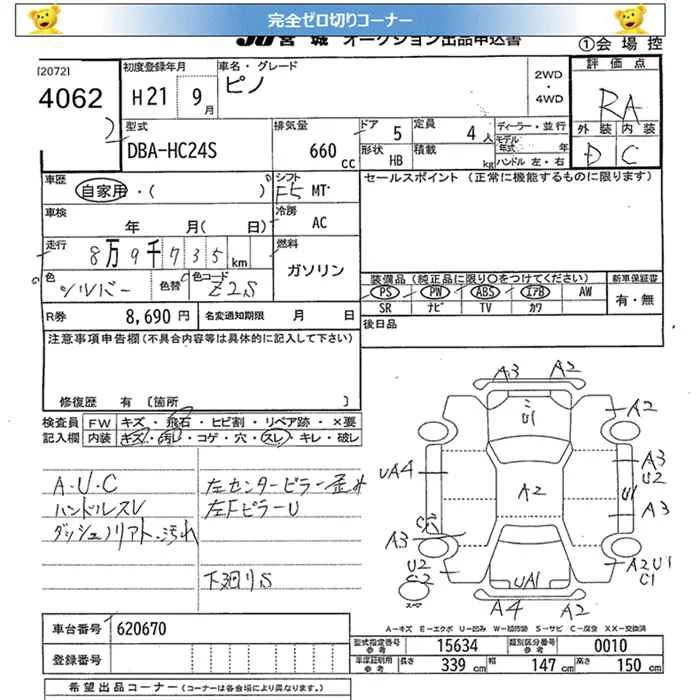 完全ゼロ切りコーナー
JU宮城 オークション出品申込書 ①会場控
[2072]
4062
初度登録年月 H21 9月
車名・グレード ピノ
2WD・4WD
評価点 RA
型式 DBA-HC24S
排気量 660cc
ドア 5
定員 4人
ディーラー・並行
外装 内装
D C
形状 HB
積載 kg
モデル年式 年
ハンドル 左・右
車歴 自家用・( )
シフト F5 MT
セールスポイント (正常に機能するものに限ります)
車検 年 月( 日)
冷房 AC
走行 8万9千735km
燃料 ガソリン
色 シルバー 色替 色コード Z2S
装備品 (純正品に限り○をつけてください) 新車保証書
PS PW ABS エアB AW 有・無
SR ナビ TV カワ
R券 8,690円 名変通知期限 月 日
後日品
注意事項申告欄 (不具合内容等は具体的に記入して下さい)
修復歴 有 〔箇所 〕
検査員記入欄 FW キズ・飛石・ヒビ割・リペア跡・×要
内装 キズ・汚れ・コゲ・穴・スレ・キレ・破レ
A・U・C
ハンドルスレ
ダッシュノリアト・汚れ
左センターピラー歪み
左FピラーU
下廻りS
A3 A2
U1
A2
UA4
A3
U2
A2
U1
A3
A3
U2
C2
A2U1
C1
UA1
スペア
A4 A2
A-キズ E-エクボ U-凹み W-補修跡 S-サビ C-腐食 XX-交換済
車台番号 620670
登録番号
型式指定番号 参考 15634 類別区分番号 参考 0010
車庫証明用 参考 長さ 339cm 幅 147cm 高さ 150cm
希望出品コーナー (コーナーは各会場により異なります。)